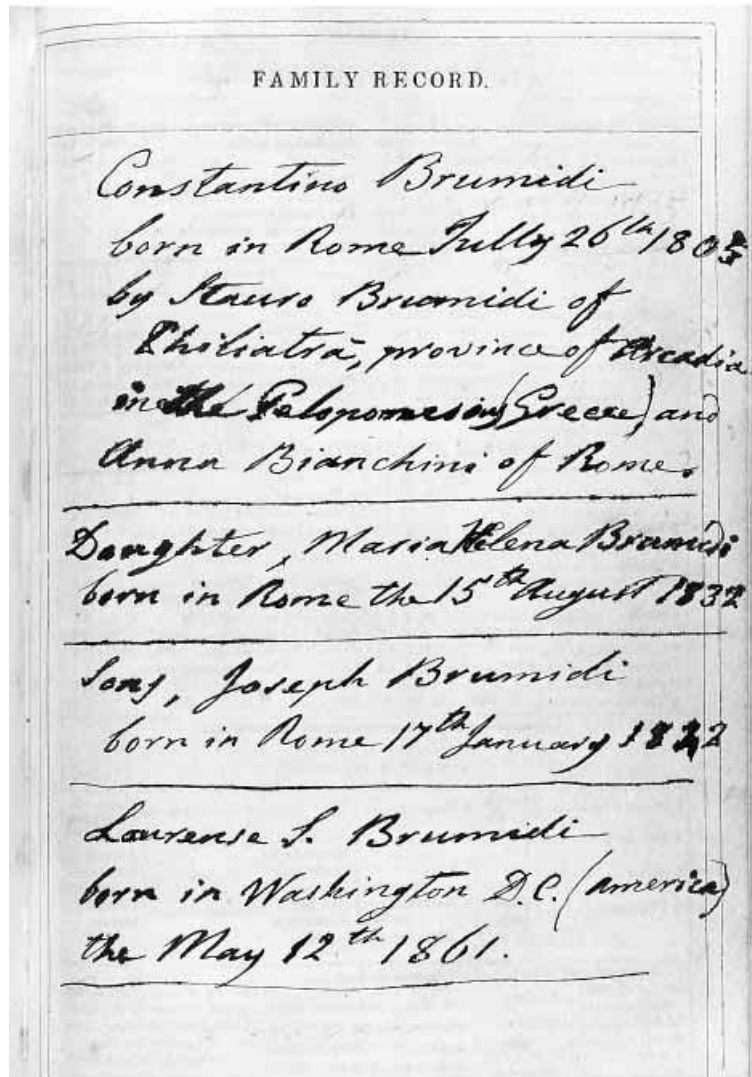 FAMILY RECORD.
Constantino Brumidi
born in Rome Jully 26th 1805
by Stauro Brumidi of
Philiatrà, province of Arcadia
in the Peloponnesus (Greece) and
Anna Bianchini of Rome.
Daughter, Maria Helena Brumidi
born in Rome the 15th August 1832
Sons, Joseph Brumidi
born in Rome 17th January 1842
Laurense S. Brumidi
born in Washington D.C. (america)
the May 12th 1861.